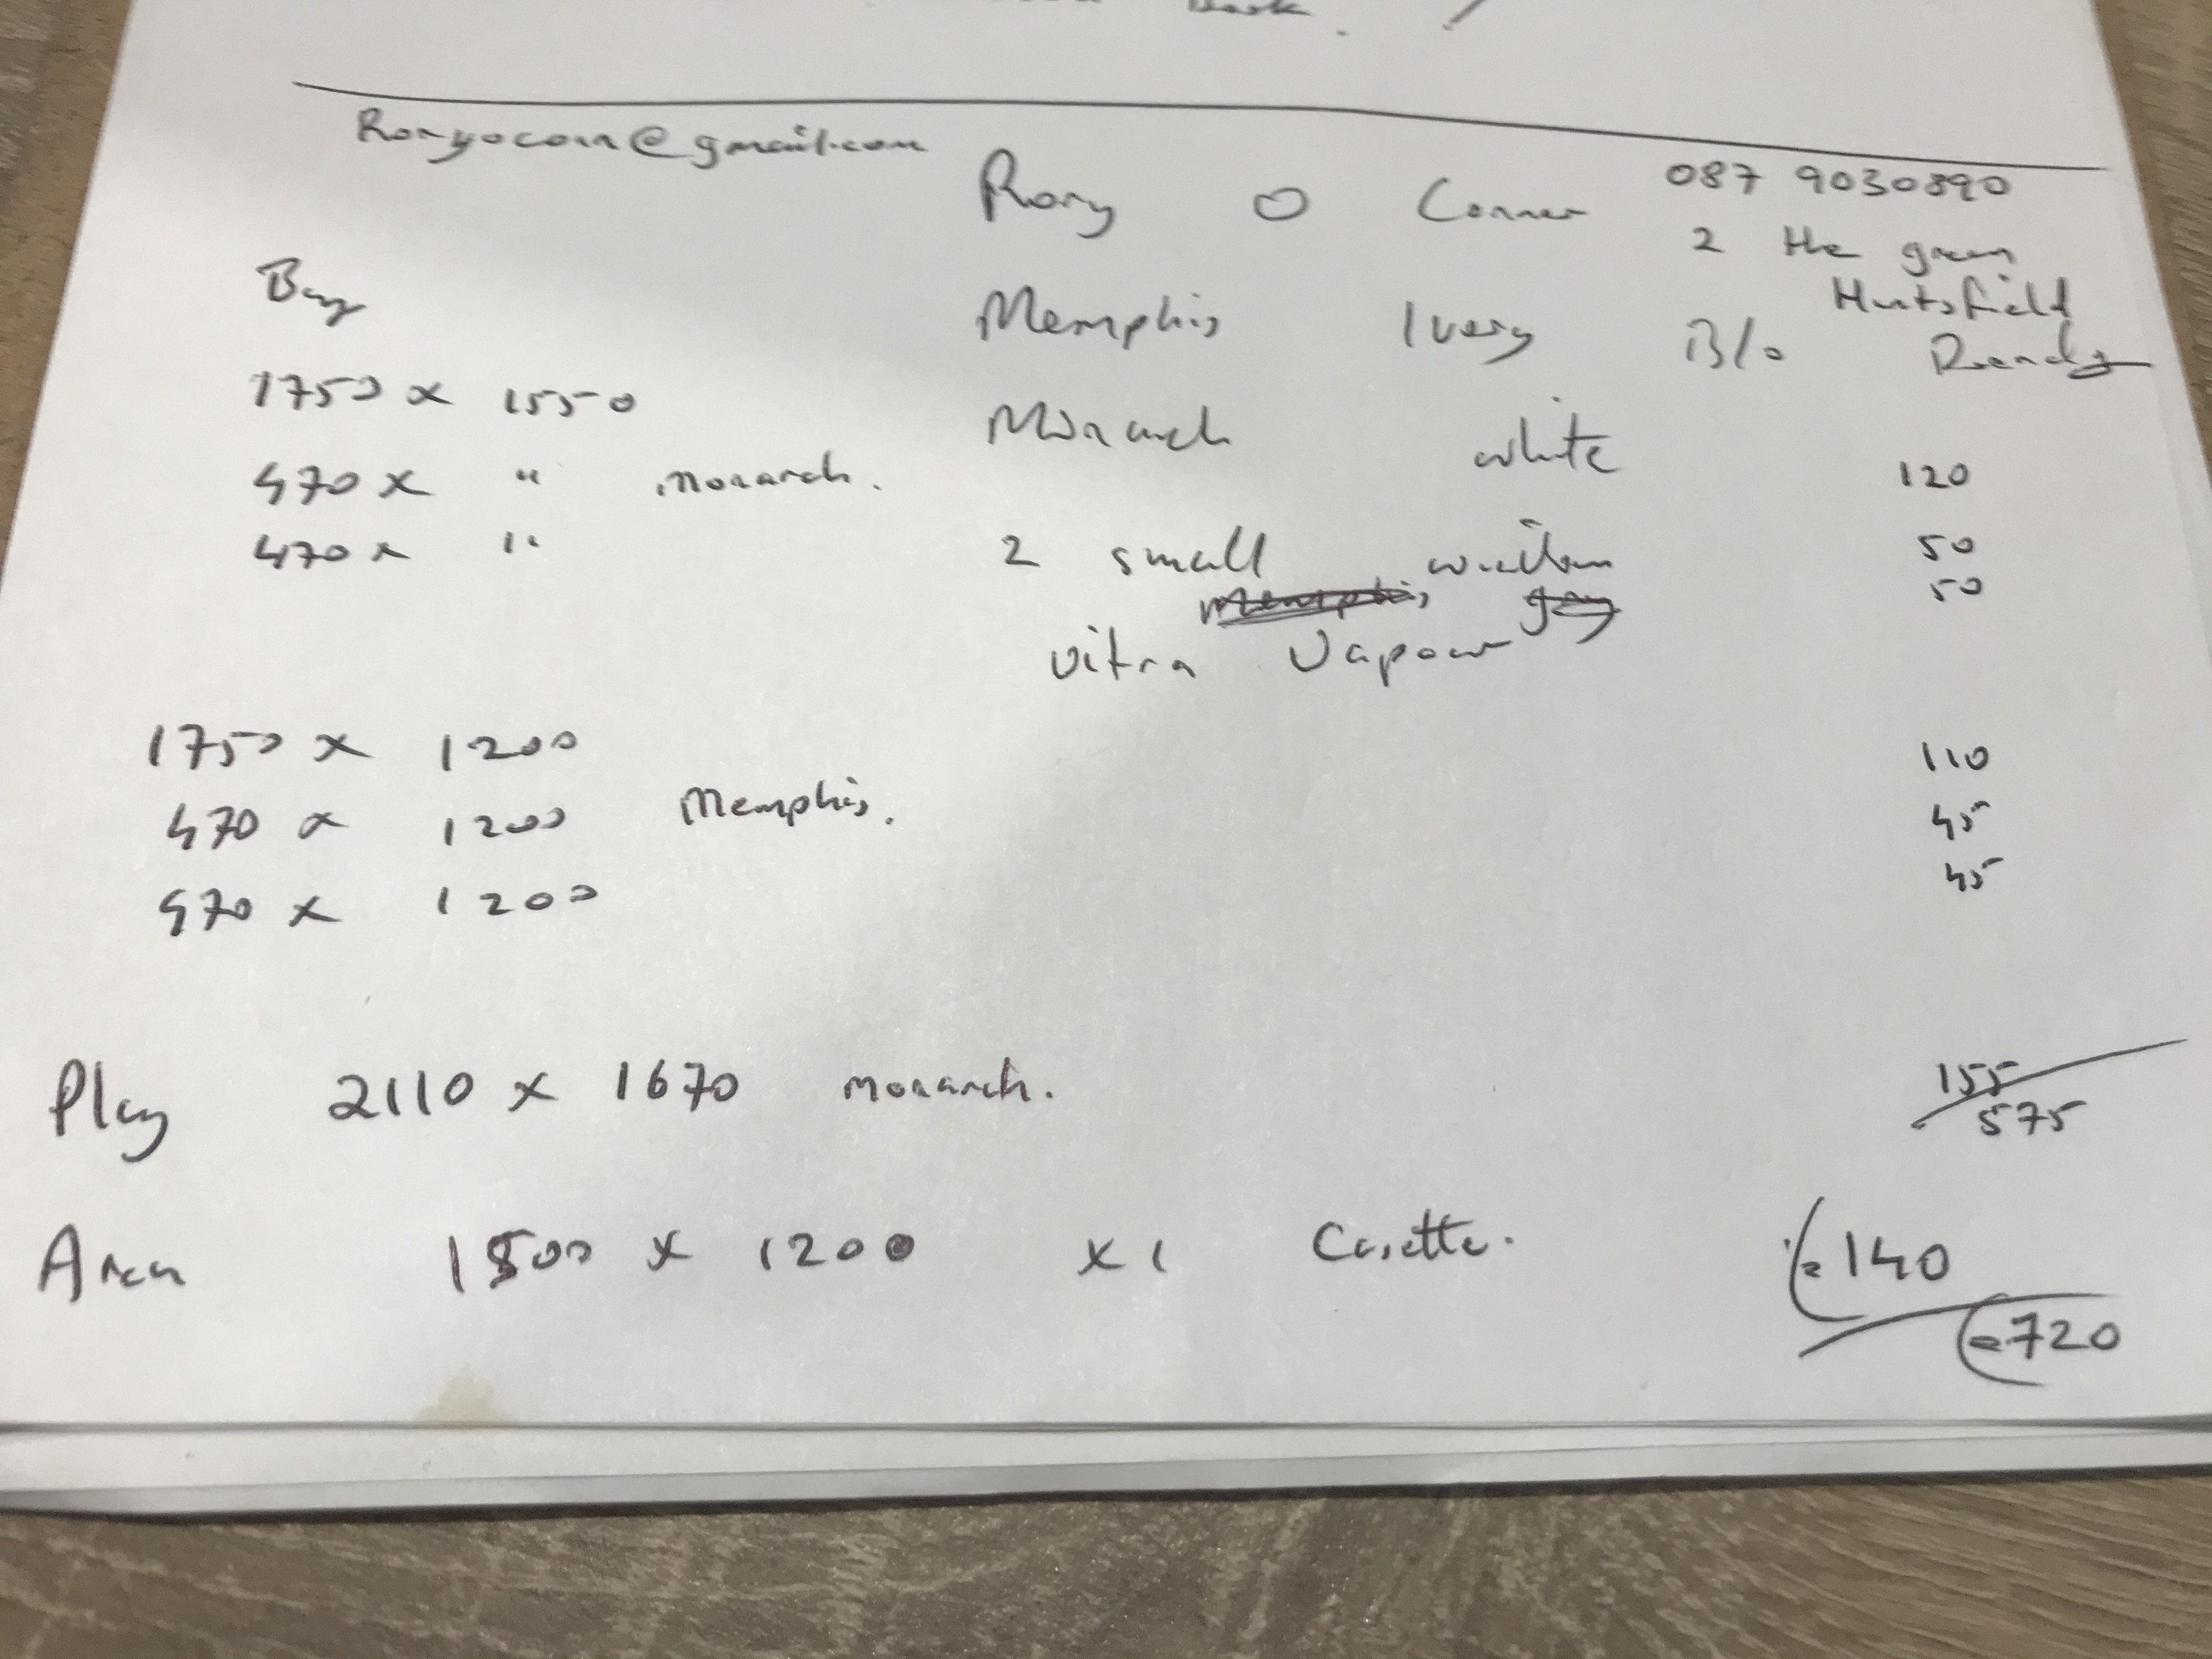 Roryoconn@gmail.com
Rory O Connor 087 9030890
2 the green
Bay Memphis Ivory B/o Huntsfield
1750 x 1550
Monarch white
470 x " monarch. 120
470 x " 2 small window 50
Memphis grey 50
vitra Vapour
1750 x 1200 110
470 x 1200 Memphis. 45
470 x 1200 45
Play 2110 x 1670 monarch. 155
575
Area 1500 x 1200 x 1 Casette. €140
€720